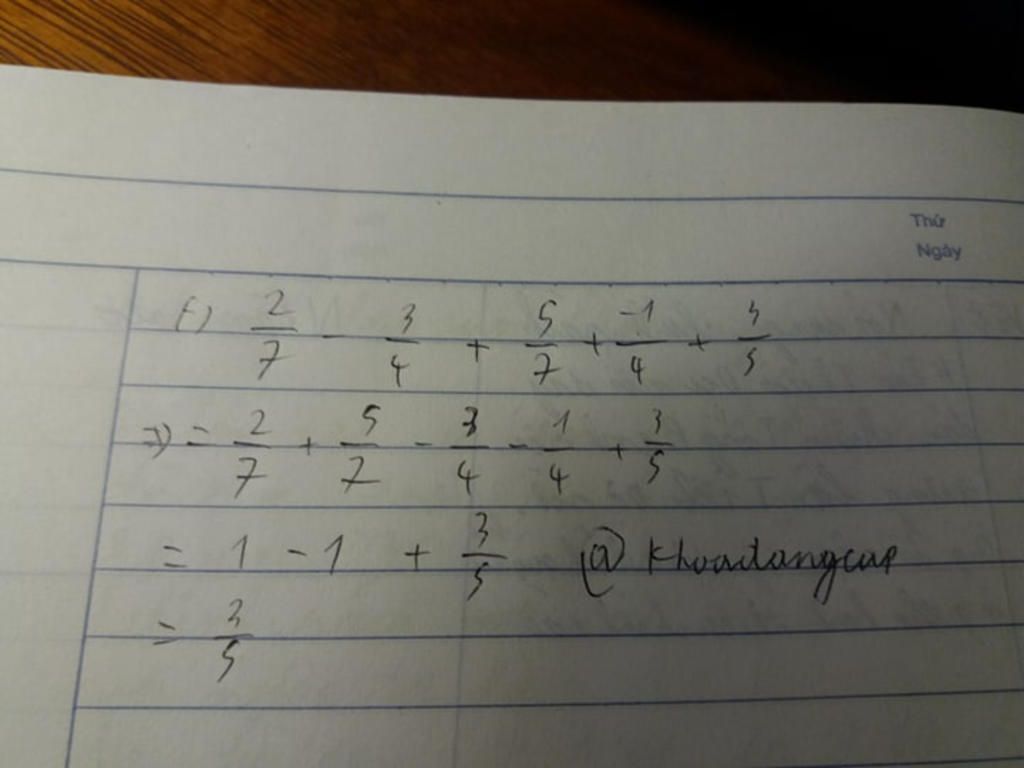 Thứ
Ngày
f) 2/7 - 3/4 + 5/7 + -1/4 + 3/5
=) = 2/7 + 5/7 - 3/4 - 1/4 + 3/5
= 1 - 1 + 3/5 @ Khoadangcap
= 3/5